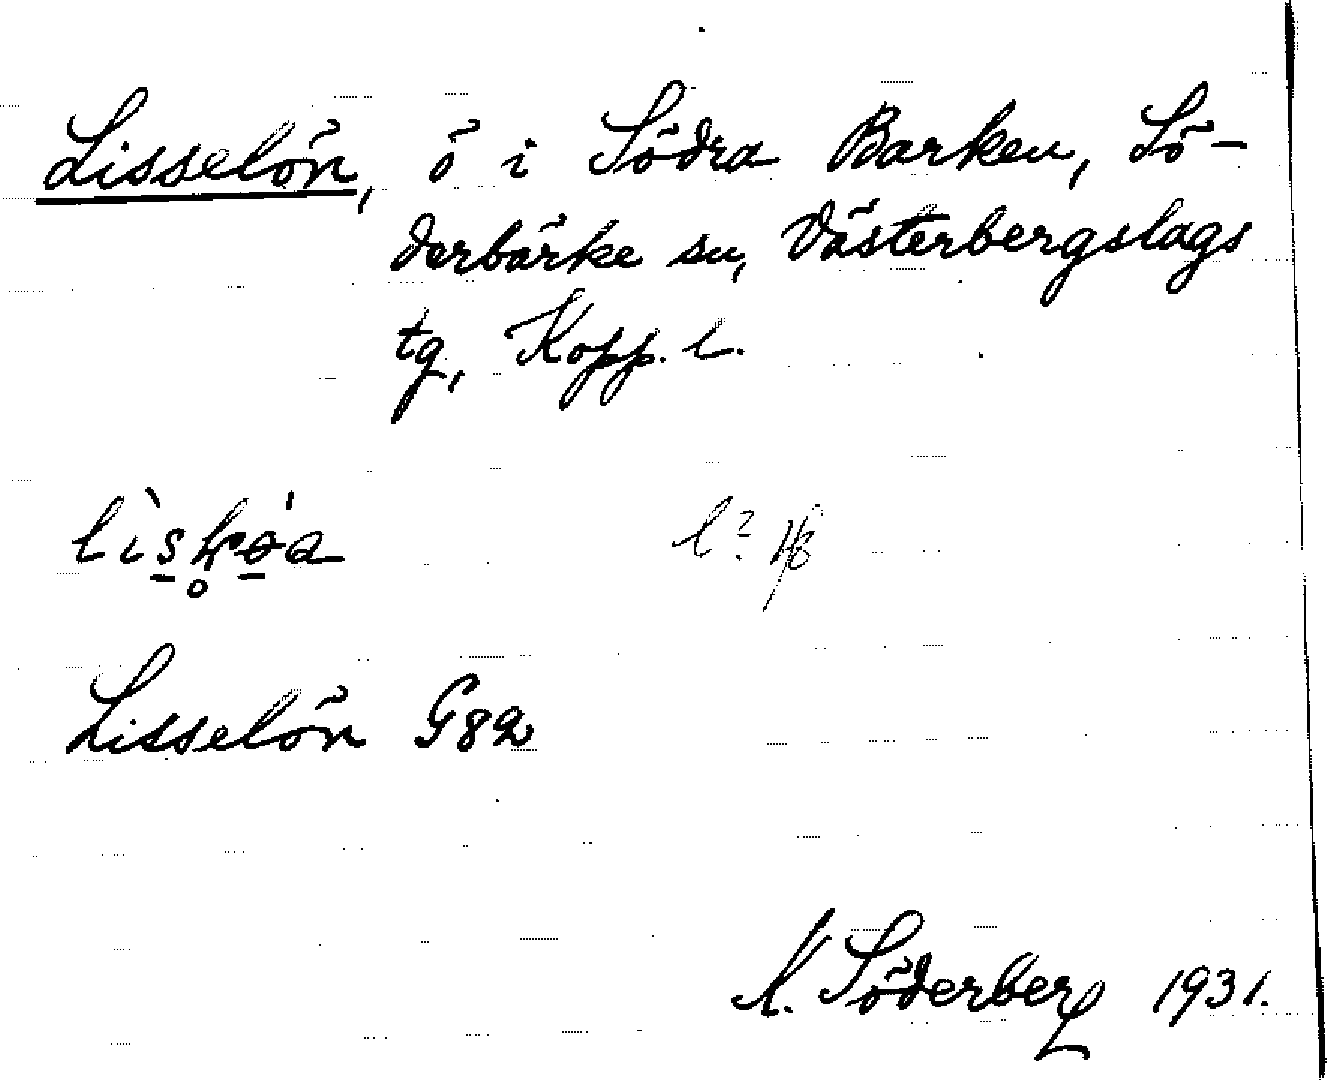 Lisselön, ö i Södra Barken, Sö-
derbärke sn, Västerbergslags
tg, Kopp. l.
l?
Lisselön G82
Söderberg 1931.